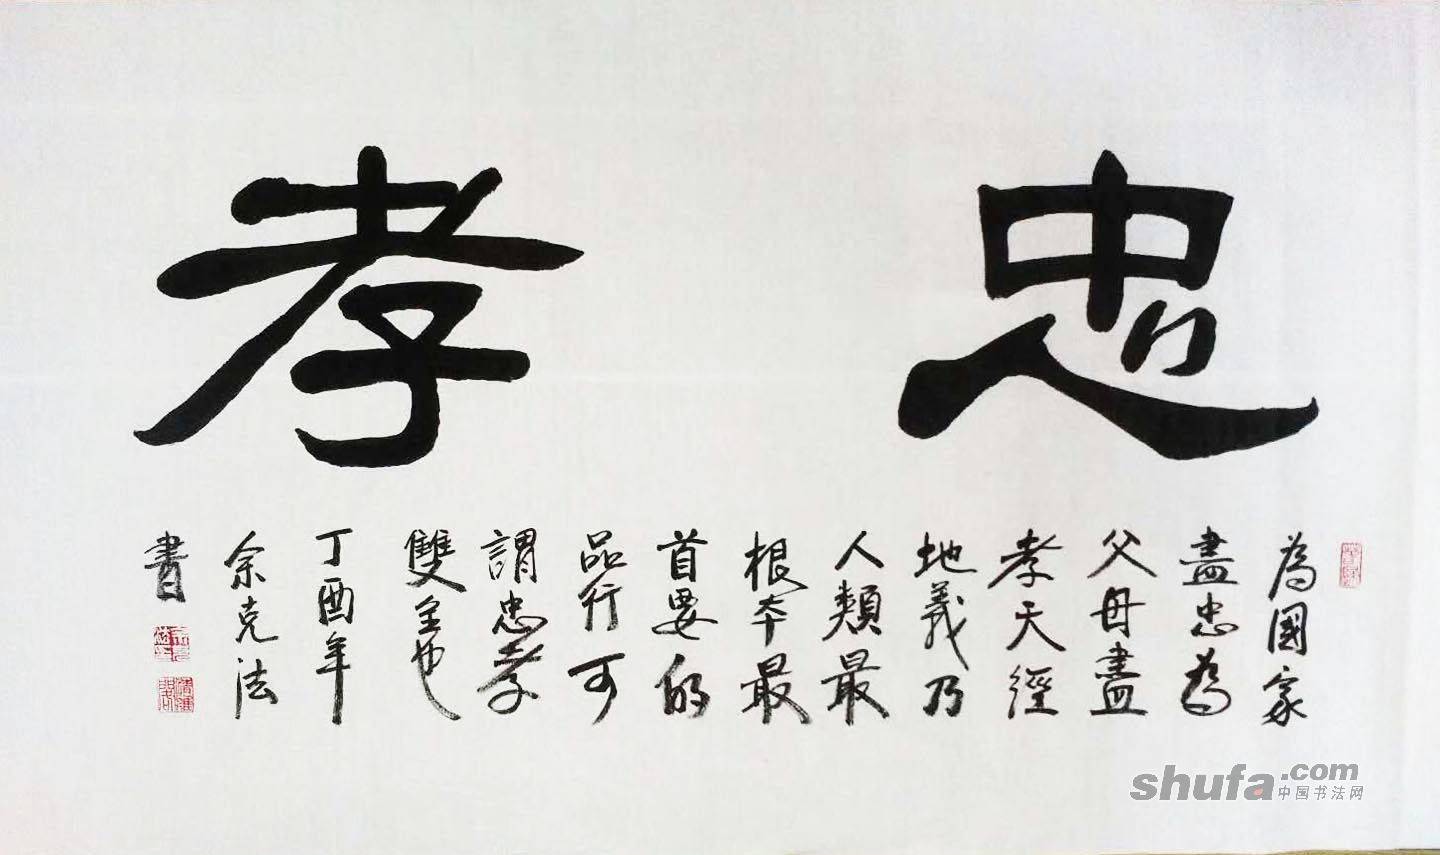 忠孝
為國家
盡忠為
父母盡
孝天經
地義乃
人類最
根本最
首要的
品行可
謂忠孝
雙全也
丁酉年
余克法
書
shufa.com
中国书法网